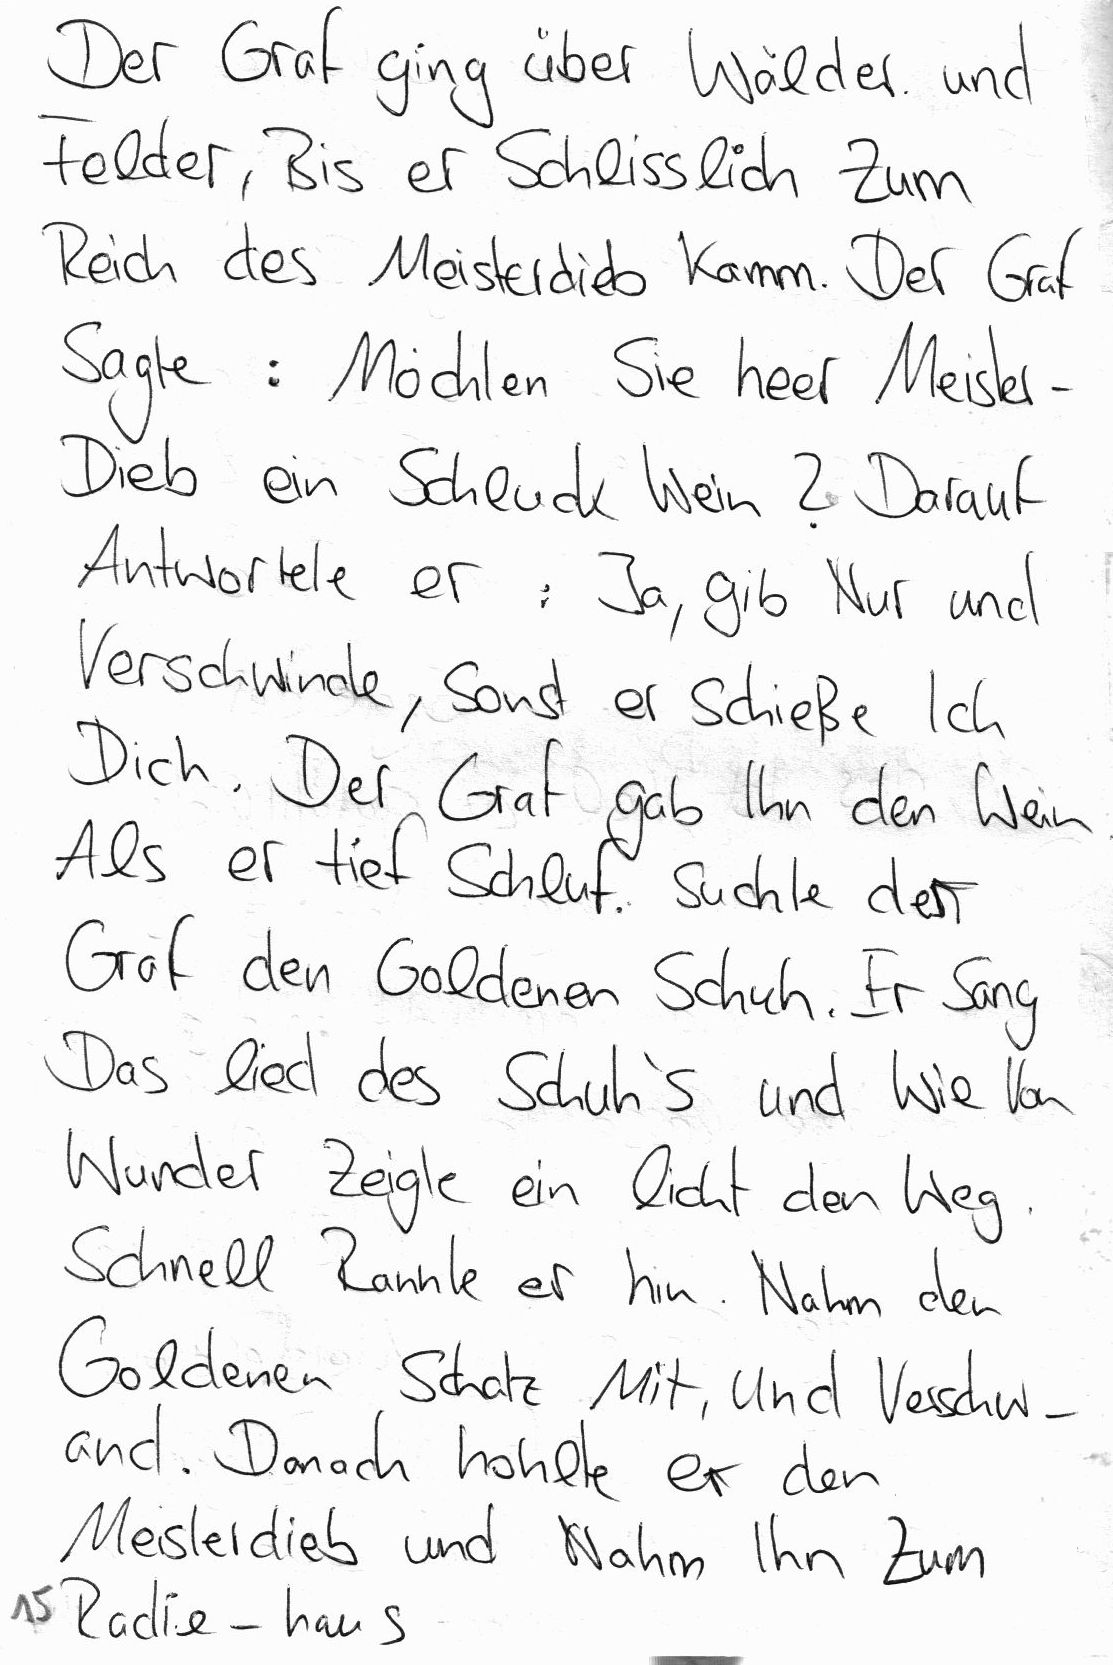 Der Graf ging über Wälder. und
Felder, Bis er Schlisslich Zum
Reich des Meisterdieb Kamm. Der Graf
Sagte : Möchten Sie heer Meister-
Dieb ein Schluck Wein ? Darauf
Antwortete er : Ja, gib Nur und
Verschwinde, Sonst er schieße Ich
Dich. Der Graf gab Ihn den Wein.
Als er tief Schluf. Suchte der
Graf den Goldenen Schuh. Er Sang
Das lied des Schuh's und Wie Von
Wunder Zeigte ein licht den Weg.
Schnell Rannte er hin. Nahm den
Goldenen Schatz Mit, Und Verschw-
and. Danach hohlte er den
Meisterdieb und Nahm Ihn Zum
15 Radie-haus